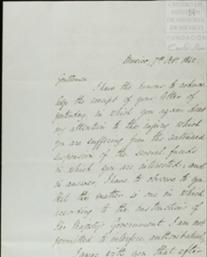 Mexico, 7th
Gentlemen
I have the honor to acknow-
ledge the receipt of your letter of
yesterday, in which you again draw
my attention to the injury which
you are suffering from the continued
suspension of the several funds
in which you are interested; and
in answer, I have to observe to you
that the matter is one in which
according to the instructions of
Her Majesty's Government I am not
permitted to interfere
I agree with you that